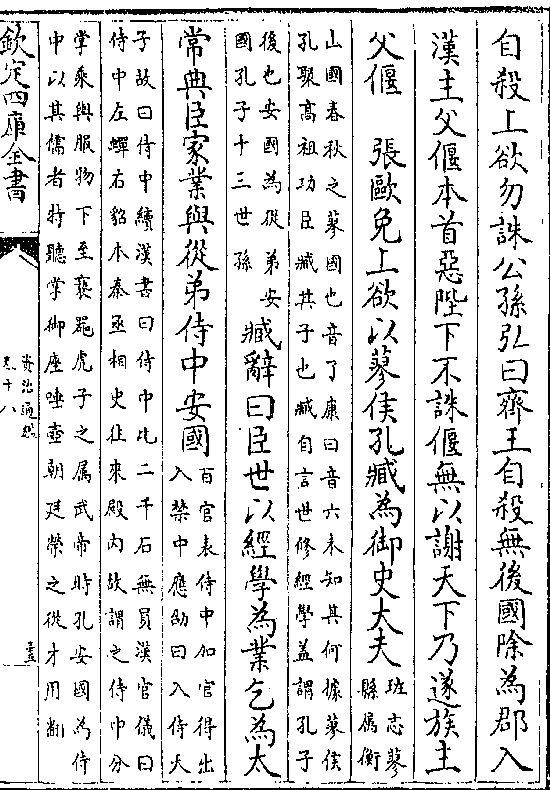 自殺上欲勿誅公孫弘曰齊王自殺無後國除為郡入
漢主父偃本首惡陛下不誅偃無以謝天下乃遂族主
父偃　張歐免上欲以蓼侯孔臧為御史大夫
班志蓼
縣屬衡
山國春秋之蓼國也音了康曰音六未知其何據蓼侯
孔聚髙祖功臣臧其子也臧自言世修經學蓋謂孔子
後也安國為從弟安
國孔子十三世孫
臧辭曰臣世以經學為業乞為太
常典臣家業與從弟侍中安國
百官表侍中加官得出
入禁中應劭曰入侍天
子故曰侍中續漢書曰侍中比二千石無員漢官儀曰
侍中左蟬右貂本秦丞相史往來殿内故謂之侍中分
掌乘輿服物下至褻器虎子之属武帝時孔安國為侍
中以其儒者特聽掌御座唾壺朝廷榮之從才用翻
欽定四庫全書
資治通鑑
卷十八